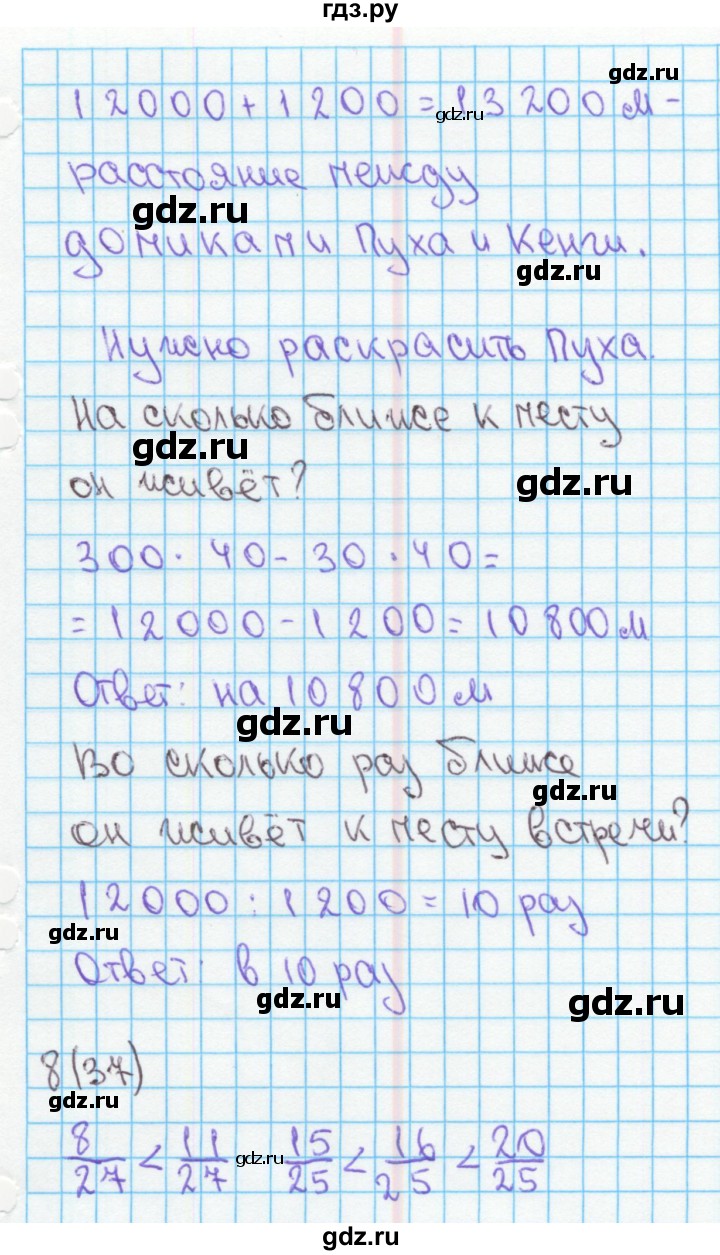 гдз.ру
gdz.ru
12000+1200=13200 м-
gdz.ru
расстояние между
gdz.ru
домиками Пуха и Кенги.
gdz.ru
Нужно раскрасить Пуха.
На сколько ближе к месту
gdz.ru
он живёт?
gdz.ru
300·40-30·40=
=12000-1200=10800м
Ответ: на 10800м
gdz.ru
Во сколько раз ближе
gdz.ru
он живёт к месту встречи?
12000:1200=10 раз
gdz.ru
Ответ: в 10 раз
gdz.ru
gdz.ru
8(37)
gdz.ru
8/27 < 11/27 15/25 < 16/25 < 20/25
gdz.ru
gdz.ru